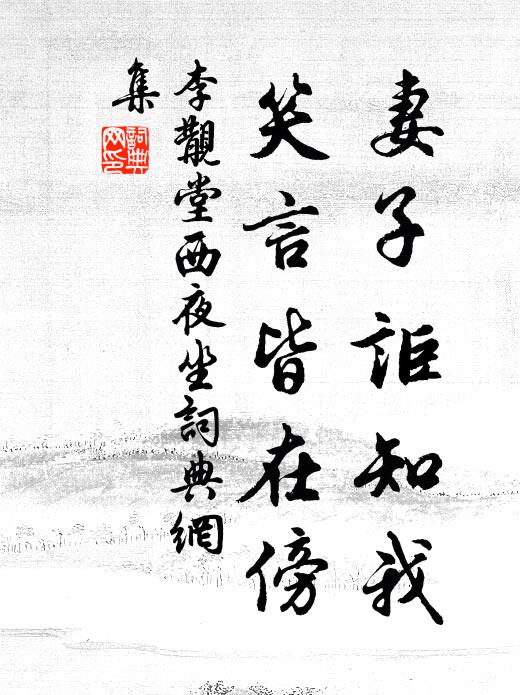 妻子詎知我
笑言皆在傍
李觏堂西夜坐詞典網
集
詞典
网印